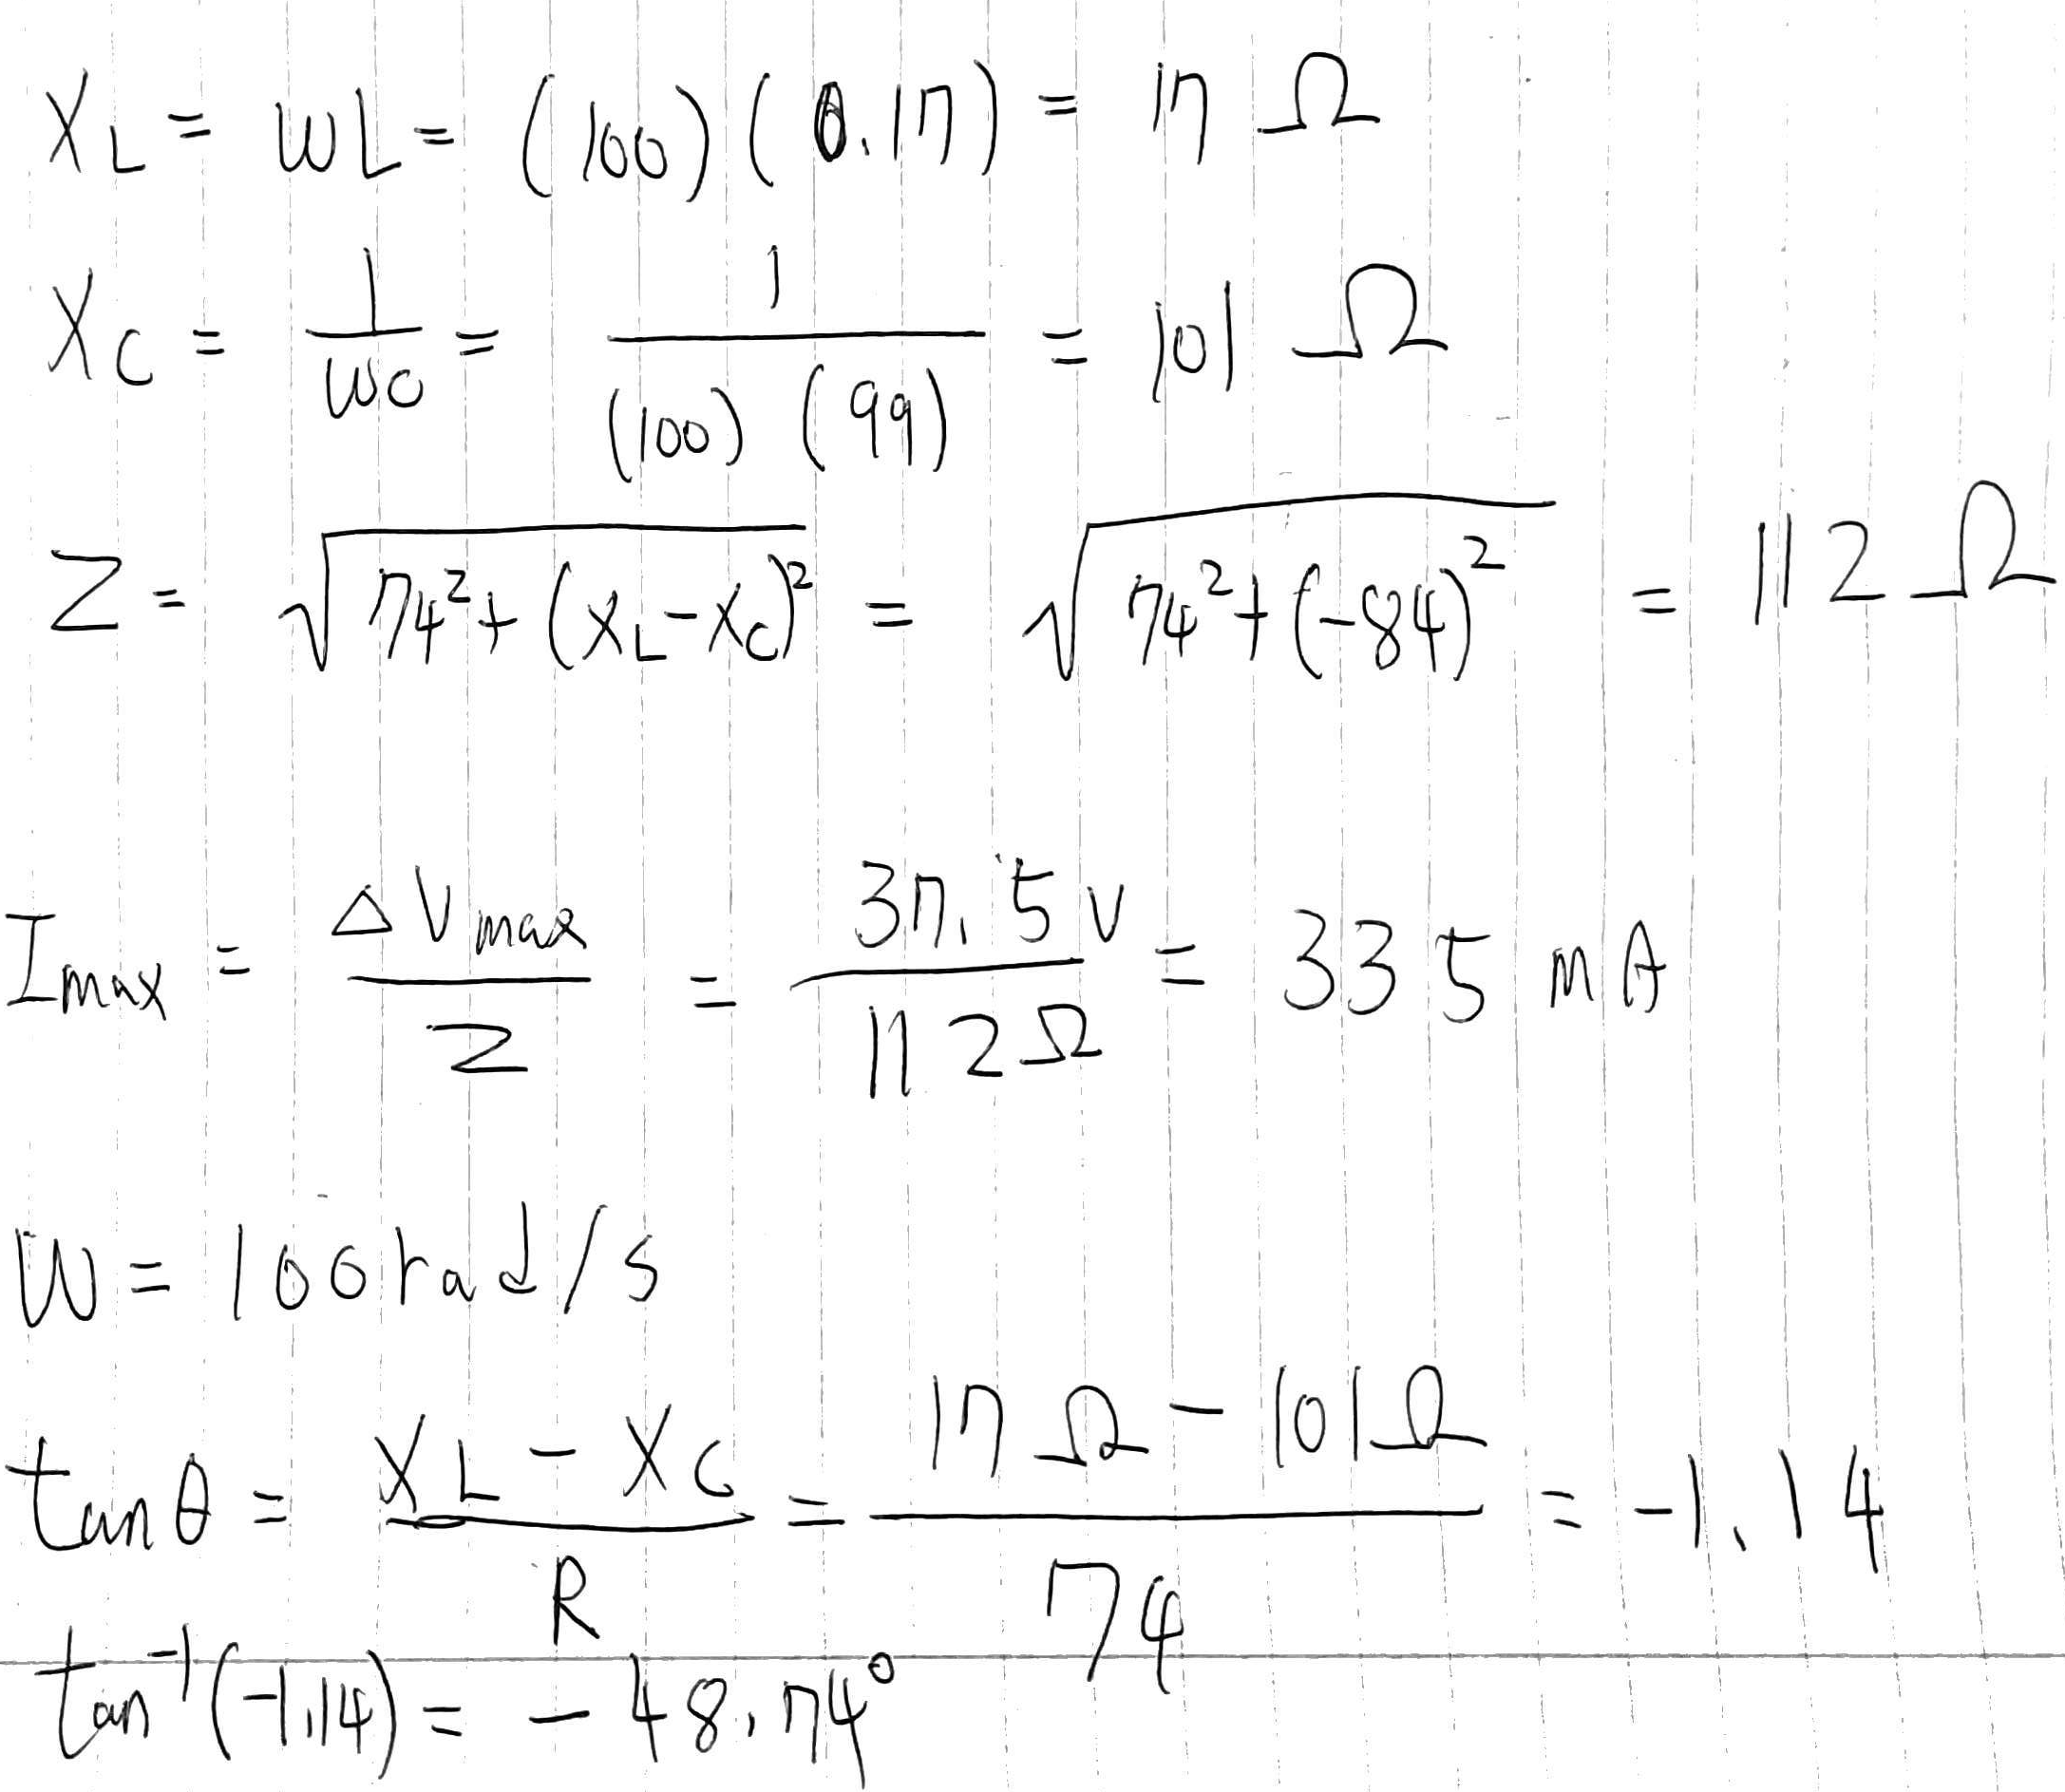 X_L = ωL = (100)(0.17) = 17 Ω
X_C = 1/ωC = 1/(100)(99) = 101 Ω
Z = √(74² + (X_L - X_C)²) = √(74² + (-84)²) = 112 Ω
I_max = ΔV_max/Z = 37.5 V/112 Ω = 335 mA
ω = 100 rad/s
tan θ = (X_L - X_C)/R = (17 Ω - 101 Ω)/74 = -1.14
tan⁻¹(-1.14) = -48.74°